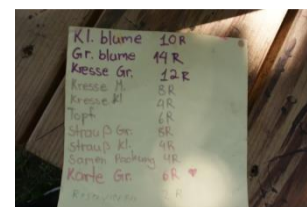 Kl. blume 10R
Gr. blume 14R
Kresse Gr. 12R
Kresse M. 8R
Kresse Kl. 4R
Topf 6R
Strauß Gr. 8R
Strauß Kl. 4R
Samen Packung 4R
Karte Gr. 6R ♥
R